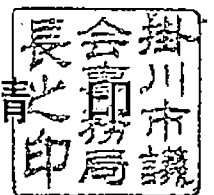 掛川市議
会事務局
長之印
青